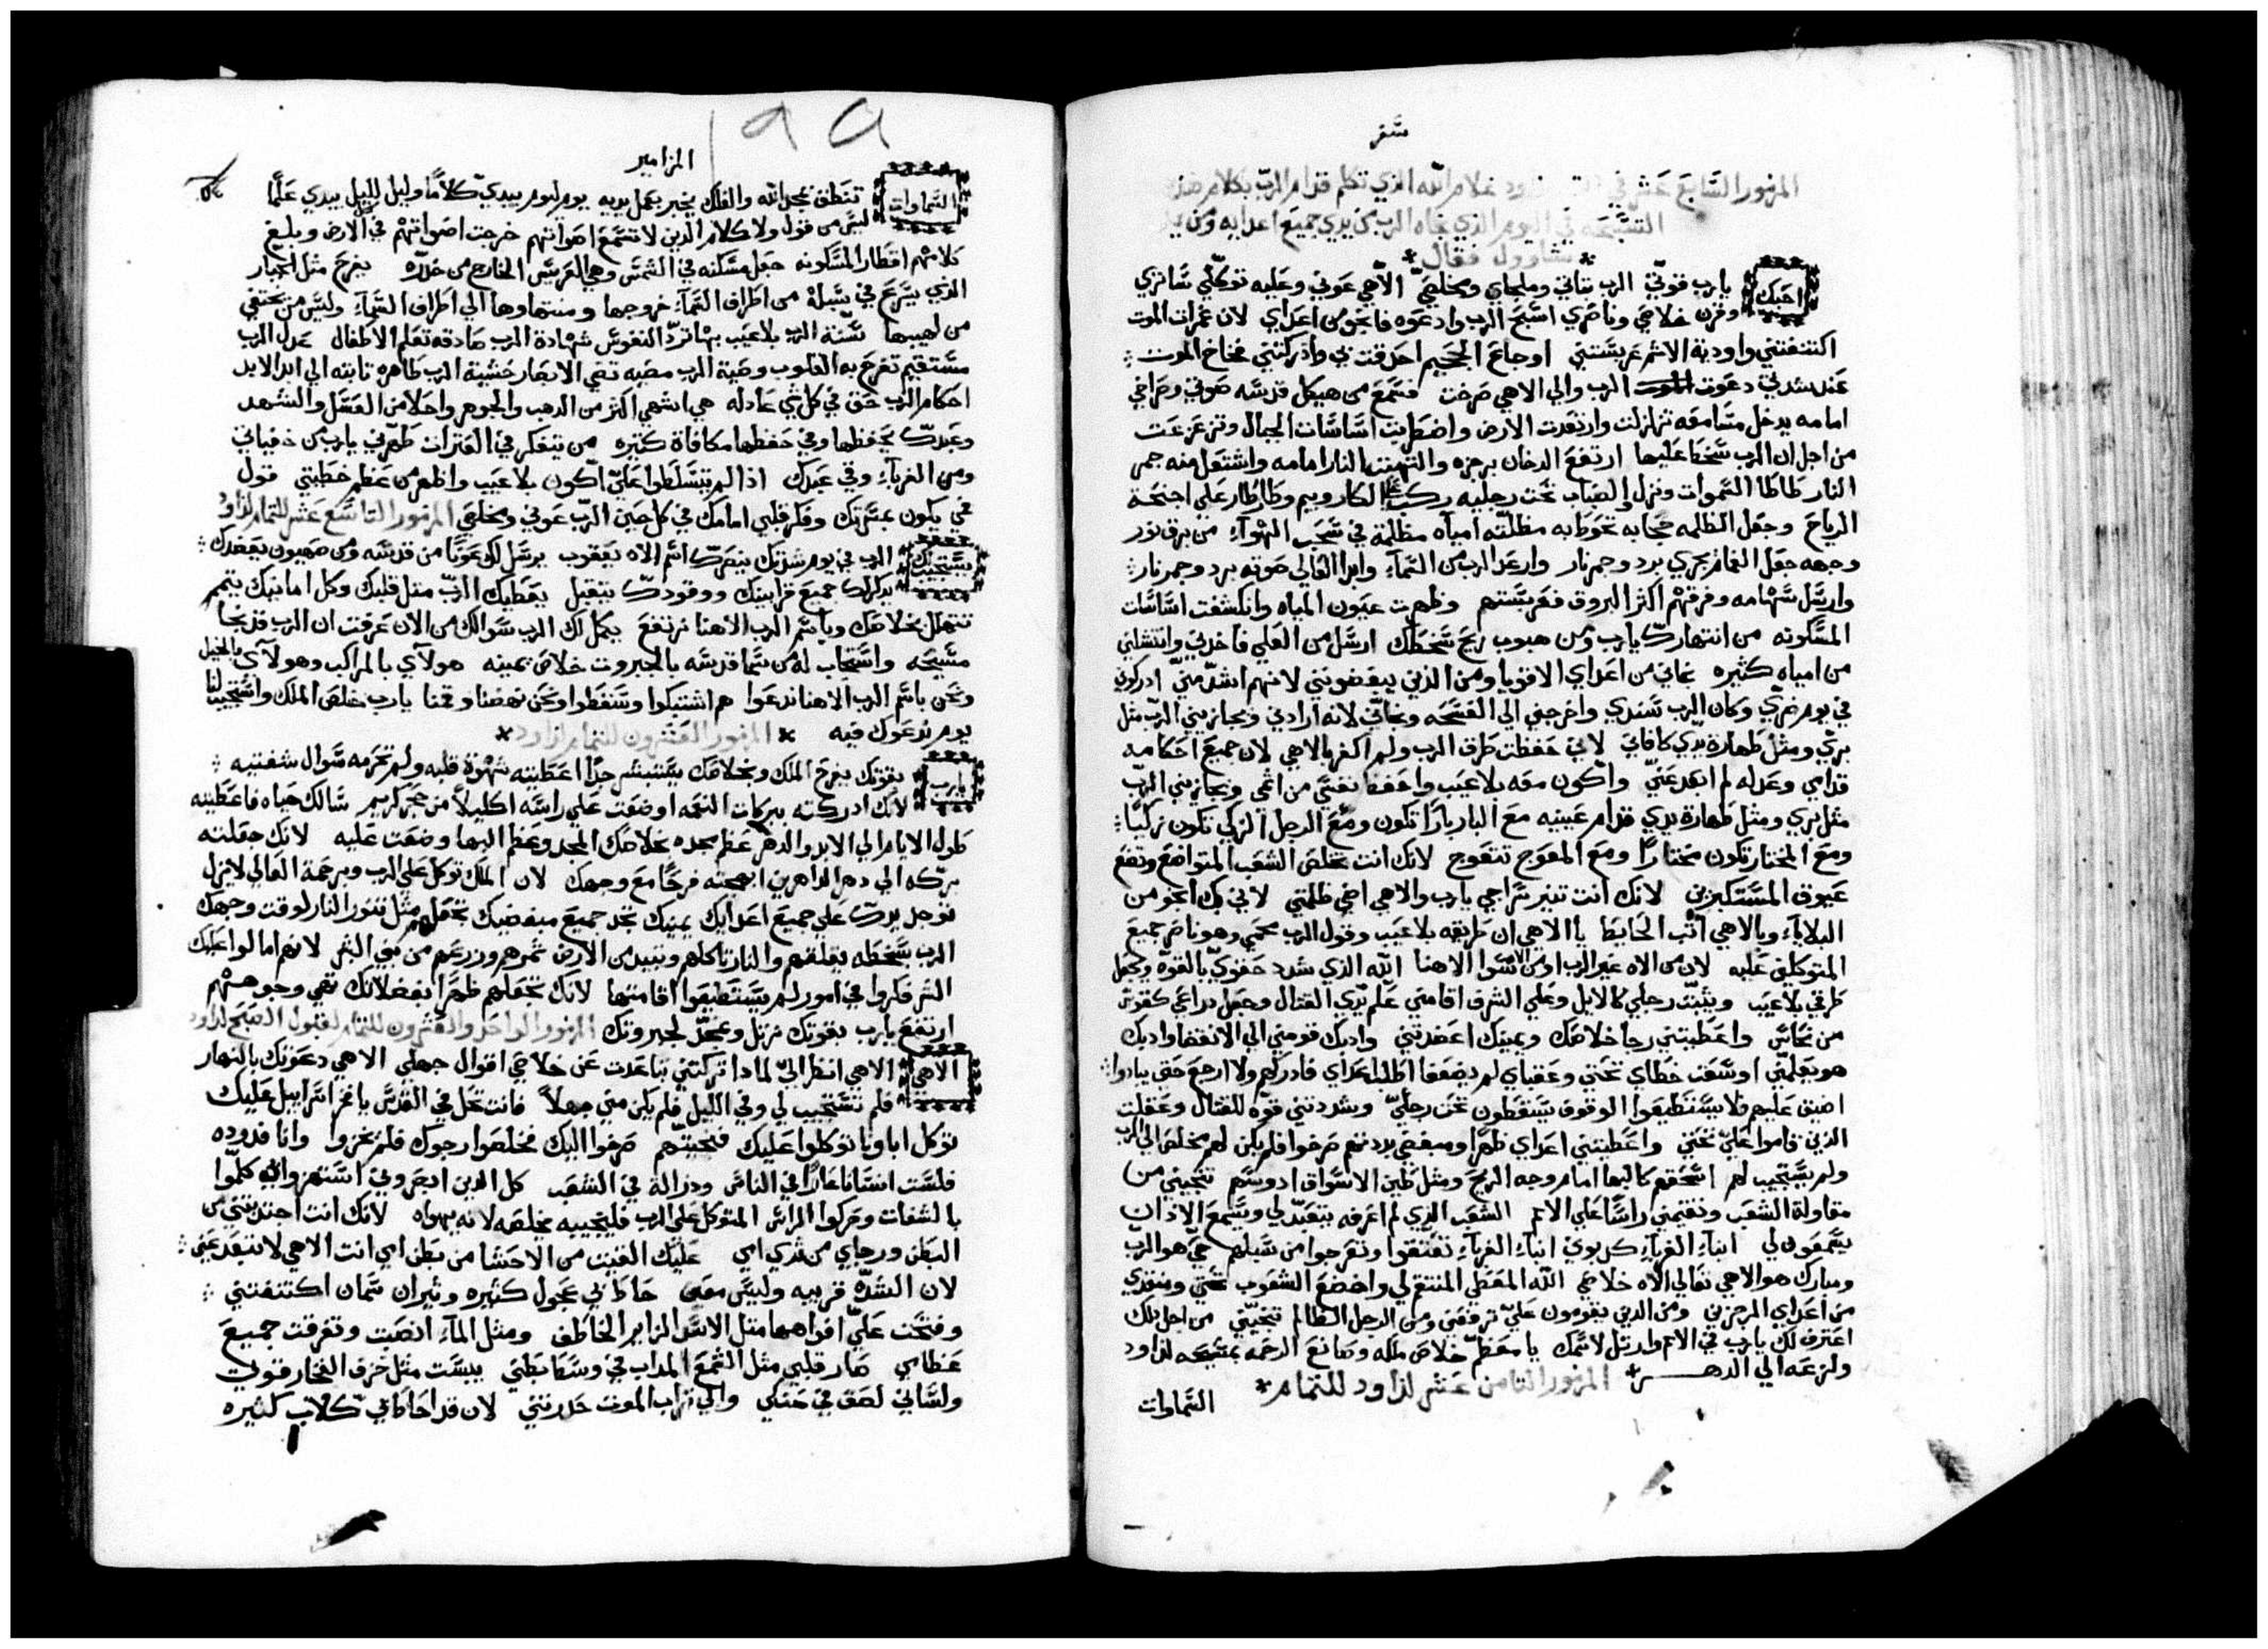 سفر
المزمور السابع عشر في لداوود غلام الله الذي تكلم قدام الرب بكلام هذه
التسبحه في اليوم الذي نجاه الرب من يدي جميع اعدايه ومن يد
* شاوول فقال *
احبك يا رب قوتي الرب ثباتي وملجاي ومخلصي الاهي عوني وعليه توكلي ساتري
وقرن خلاصي وناصري اسبح الرب وادعوه فانجو من اعداي لان غمرات الموت
اكتنفتني واودية الاثم عربستني اوجاع الجحيم احدقت بي وادركتني فخاخ الموت :
عند شدتي دعوت الرب والي الاهي صرخت فسمع من هيكل قدسه صوتي وصراخي
امامه يدخل مسامعه تزلزلت وارتعدت الارض واضطربت اساسات الجبال وتزعزعت
من اجل ان الرب سخط عليها ارتفع الدخان برجزه والتهبت النار امامه واشتعل منه جمر
النار طاطا السموات ونزل والضباب تحت رجليه ركب علي الكاروبيم وطار طار علي اجنحة
الرياح وجعل الظلمه حجابه تحوط به مظلته امياه مظلمة في سحب الهوآء من برق نور
وجهه جعل الغمام يجري برد وجمر نار وارعد الرب من السمآء وابدا العالي صوته برد وجمر نار :
وارسل سهامه وفرقهم اكثر البروق فعربستهم وظهرت عيون المياه وانكشفت اساسات
المسكونه من انتهارك يا رب ومن هبوب ريح سخطك ارسل من العلي فاخدني وانتشلني
من امياه كثيره نجاني من اعداي الاقويا ومن الذين يبغضونني لانهم اشد مني ادركوني
في يوم ضري وكان الرب سندي واخرجني الي الفسحه ونجاني لانه ارادني ويجازيني الرب مثل
بري ومثل طهارة يدي كافاني لاني حفظت طرق الرب ولم اكفر بالاهي لان جميع احكامه
قدامي وعدله لم ابعد عني واكون معه بلا عيب واحفظ نفسي من اثمي ويجازيني الرب
مثل بري ومثل طهارة يدي قدام عينيه مع البار بارا تكون ومع الرجل الزكي تكون زكيا :
ومع المختار تكون مختارا ومع المعوج تتعوج لانك انت تخلص الشعب المتواضع وتضع
عيون المستكبرين لانك انت تنير سراجي يا رب والاهي اضي ظلمتي لاني بك انجو من
البلايا وبالاهي اثب الحايط يا الاهي ان طريقه بلا عيب وقول الرب محمي وهو ناصر جميع
المتوكلين عليه لان من الاه غير الرب او من الاه سوا الاهنا الله الذي شدد حقوي بالقوة وجعل
طرقي بلا عيب ويثبت رجلي كالايل وعلي الشرف اقامني علم يدي القتال وجعل دراعي كقوس
من نحاس واعطيتني رجا خلاصك ويمينك اعضدتني وادبك قومني الي الانقضا وادبك
هو يعلمني اوسعت خطاي تحتي وعقباي لم يضعفا اطلب اعداي فادركهم ولا ارجع حتي يبادوا :
اضيق عليهم فلا يستطيعوا الوقوف يسقطون تحت رجلي وشددتني قوه للقتال وعقلت
الذين قاموا علي تحتي واعطيتني اعداي ظهرا ومبغضي بددتهم صرخوا فلم يكن لهم مخلص الي الرب
ولم يستجيب لهم اسحقهم كالهبا امام وجه الريح ومثل طين الاسواق ادوسهم تنجيني من
مقاولة الشعب وتقيمني راسا علي الامم الشعب الذي لم اعرفه يتعبد لي ويسمع الاذان
يسمعون لي ابنآء الغربآء كدبوني ابنآء الغربآء تعتقوا وتعرجوا من سبلهم حي هو الرب
ومبارك هو الاهي تعالي الاه خلاصي الله المعطي المنتقم لي واخضع الشعوب تحتي ومنقذي
من اعداي المرجزين ومن الدين يقومون علي ترفعني ومن الرجل الظالم تنجيني من اجل ذلك
اعترف لك يا رب في الامم وارتل لاسمك يا معظم خلاص ملكه وصانع الرحمه بمسيحه لداود
ولزرعه الي الدهر * المزمور الثامن عشر لداود للتمام *
السماوات
١٩٩
المزامير
السماوات تنطق بمجد الله والفلك يخبر بعمل يديه يوم ليوم يبدي كلاما وليل لليل يبدي علما
ليس من قول ولا كلام الذين لا تسمع اصواتهم خرجت اصواتهم في الارض وبلغ
كلامهم اقطار المسكونه جعل مسكنه في الشمس وهي العريس الخارج من خدره يفرح مثل الجبار
الذي يسرع في سبله من اطراف السمآء خروجها ومنتهاوها الي اطراف السمآء وليس من يختفي
من لهيبها سنة الرب بلا عيب بها ترد النفوس شهادة الرب صادقه تعلم الاطفال عدل الرب
مستقيم تفرح به القلوب وصية الرب مضيه تضي الابصار خشية الرب طاهره ثابته الي ابد الابد
احكام الرب حق في كل شي عادله هي اشهي اكثر من الدهب والجوهر واحلا من العسل والشهد
وعبدك يحفظها وفي حفظها مكافاة كثيره من يتفكر في العثرات طهرني يا رب من خفياتي
ومن الغربآء وقي عبدك اذا لم يتسلطوا علي اكون بلا عيب واطهر من عظم خطيتي قول
فمي يكون بمسرتك وفكر قلبي امامك في كل حين الرب عوني ومخلصي المزمور التاسع عشر للتمام لداود
يستجيبك الرب في يوم شدتك ينصرك اسم الاه يعقوب يرسل لك عونا من قدسه ومن صهيون يعضدك :
يذكر لك جميع قرابينك ووقودك يتقبل يعطيك الرب مثل قلبك وكل امانيك يتمم
نتهلل بخلاصك وباسم الرب الاهنا نرتفع يكمل لك الرب سوالك من الان عرفت ان الرب قد نجا
مسيحه واستجاب له من سما قدسه بالجبروت خلاص يمينه هولآي بالمراكب وهولآي بالخيل
ونحن باسم الرب الاهنا ندعوا هم اشتبكوا وسقطوا ونحن نهضنا وقمنا يا رب خلص الملك واستجيب لنا
يوم ندعوك فيه * المزمور العشرون للتمام لداود *
يا رب بقوتك يفرح الملك وبخلاصك يستبشر جدا اعطيته شهوة قلبه ولم تحرمه سوال شفتيه :
لانك ادركته ببركات النعمه اوضعت علي راسه اكليلا من حجر كريم سالك حياه فاعطيته
طول الايام الي الابد والدهر عظم مجده بخلاصك المجد وعظم البها وضعت عليه لانك جعلته
بركه الي دهر الداهرين ابهجته فرحا مع وجهك لان الملك توكل علي الرب وبرحمة العالي لا يزل
توجد يدك علي جميع اعدايك يمينك تجد جميع مبغضيك تجعلهم مثل تنور النار لوقت وجهك
الرب بسخطه يقلقهم والنار تاكلهم وتبيد من الارض ثمرهم وزرعهم من بني البشر لانهم امالوا عليك
الشر فكروا في امور لم يستطيعوا اقامتها لانك تجعلهم ظهرا بفضلاتك تهي وجوههم
ارتفع يا رب بقوتك نرتل ونمجد لجبروتك المزمور الواحد والعشرون للتمام لقبول الصبح لداود
الاهي الاهي انظر الي لمادا تركتني تباعدت عن خلاصي اقوال جهلي الاهي دعوتك بالنهار
فلم تستجيب لي وفي الليل فلم يكن مني جهلا فانت تحل في القدس يا فخر اسراييل عليك
توكل اباونا توكلوا عليك فنجيتهم صرخوا اليك فخلصوا رجوك فلم يخزوا وانا فدوده
فلست انسانا عارا في الناس ورذالة في الشعب كل الدين ابصروني استهزوا بي كلموا
بالشفات وحركوا الرائس المتوكل علي الرب فليجيبه يخلصه لانه يهواه لانك انت اجتدبتني من
البطن ورجاي من ثدي امي عليك القيت من الاحشا من بطن امي انت الاهي لا تبتعد عني :
لان الشده قريبه وليس معين حاط بي عجول كثيره وثيران سمان اكتنفتني :
وفتحت علي افواهها مثل الاسد الزاير الخاطف ومثل المآء انصبت وتفرقت جميع
عظامي صار قلبي مثل الشمع المداب في وسط بطني يبست مثل خزف الفخار قوتي
ولساني لصق في حنكي والي تراب الموت حدرتني لان قد احاط بي كلاب كثيره